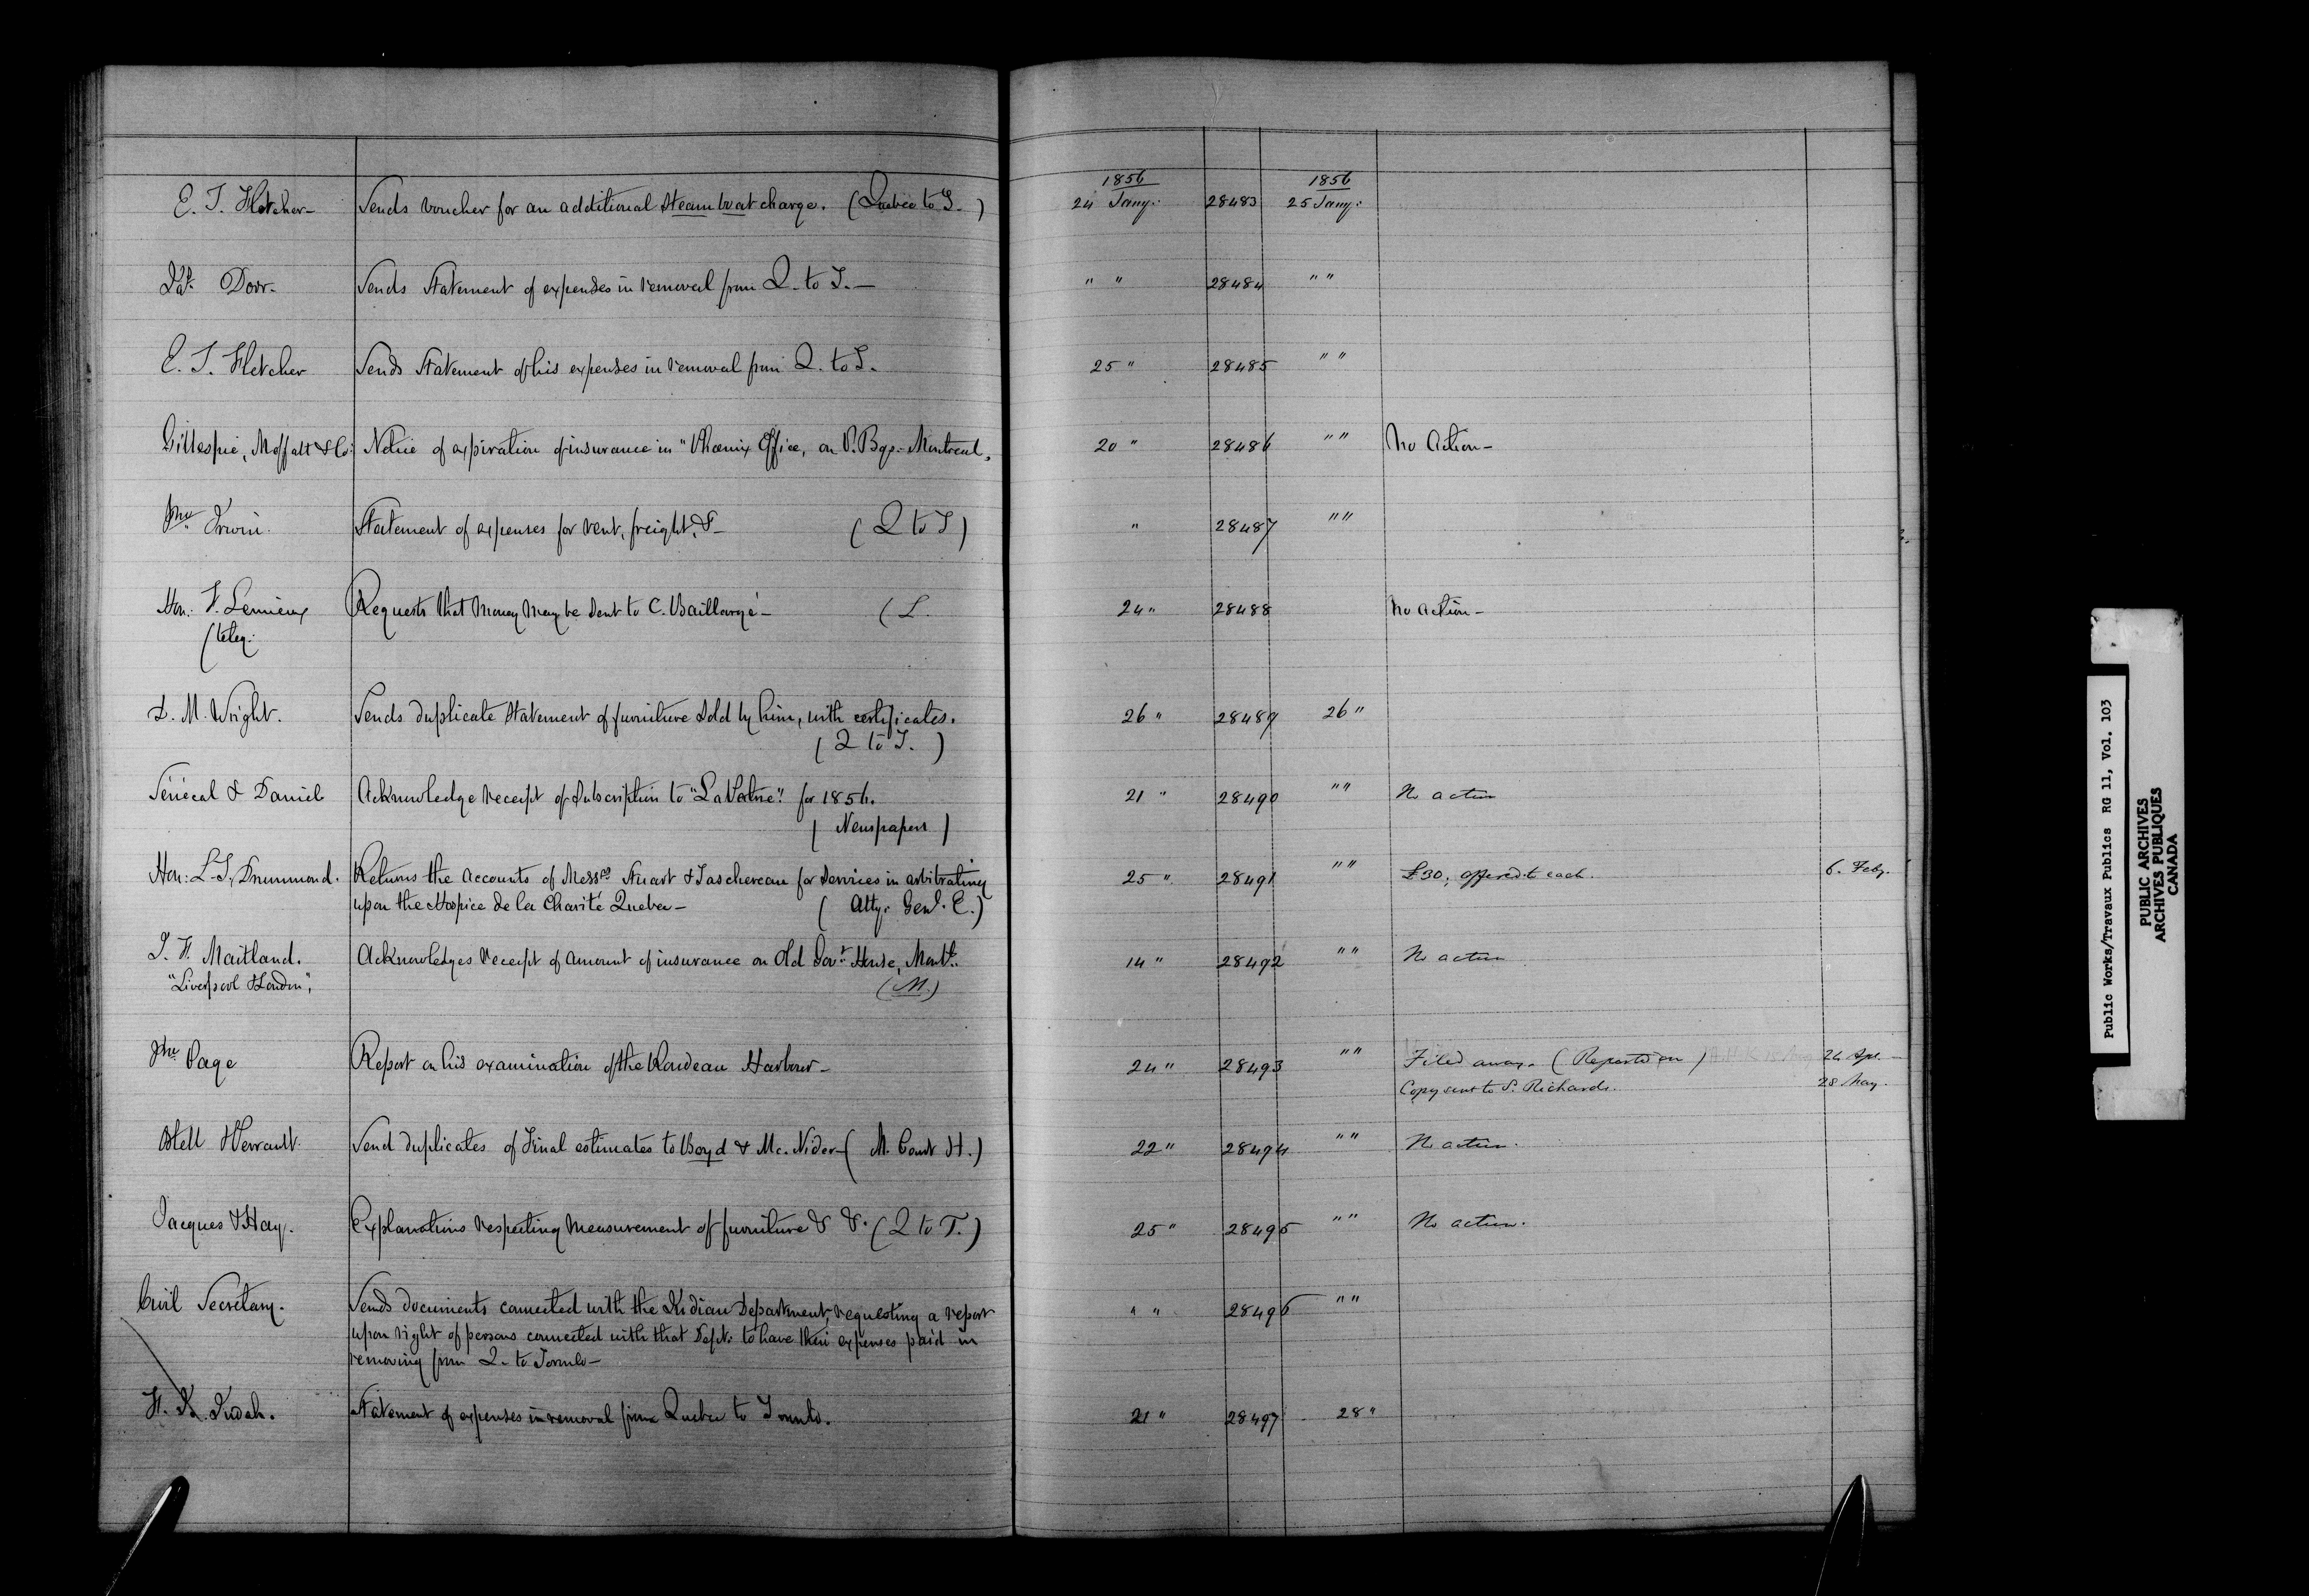 1856 1856
E. T. Fletcher- Sends voucher for an additional Steamboat charge. (Quebec to T. ) 24 Jany: 28483 25 Jany:
Dorr. Sends Statement of expenses in removal from Q. to T.- " " 28484 " "
E. T. Fletcher Sends Statement of his expenses in removal from Q. to T. 25 " 28485 " "
Gillespie, Moffatt & Co: Notice of expiration of insurance in "Phoenix Office, on P. Bgs.- Montreal. 20 " 28486 " " No Action-
Jno Irwin. Statement of expenses for rent, freight, &- (Q to T) " 28487 " "
Hon: F. Lemieux Requests that Money May be sent to C. Baillargé- (L. 24 " 28488 No action-
(teleg:
L. M. Wright. Sends duplicate Statement of furniture sold by him, with certificates. 26 " 28489 26 "
(Q to T. )
Sénécal & Daniel Acknowledge receipt of subscription to "La Patrie". for 1856. 21 " 28490 " " No action
( Newspapers )
Hon: L. T. Drummond. Returns the Accounts of Messrs Stuart & Taschereau for services in arbitrating 25 " 28491 " " £30, offered to each. 6. Feby.
upon the Hospice de la Charité Quebec- ( Atty. Genl. E.)
J. F. Maitland. Acknowledges receipt of amount of insurance on Old Govt House, Montl. 14 " 28492 " " No action
"Liverpool & London", (M.)
Jno Page Report on his examination of the Rondeau Harbour- 24 " 28493 " " Filed away. (Reported on) 24 Apl.
Copy sent to S. Richards. 28 May.
Ostell & Perrault. Send duplicates of Final estimates to Boyd & Mc. Nider- ( M. Court H.) 22 " 28494 " " No action.
Jacques & Hay. Explanations respecting Measurement of furniture & &. (Q to T.) 25 " 28495 " " No action.
Civil Secretary. Sends documents connected with the Indian Department, requesting a report " " 28496 " "
upon right of persons connected with that Dept: to have their expenses paid in
removing from Q. to Toronto-
H. K. Judah. Statement of expenses in removal from Quebec to Toronto. 21 " 28497 28 "
Public Works/Travaux Publics RG 11, Vol. 103
PUBLIC ARCHIVES
ARCHIVES PUBLIQUES
CANADA